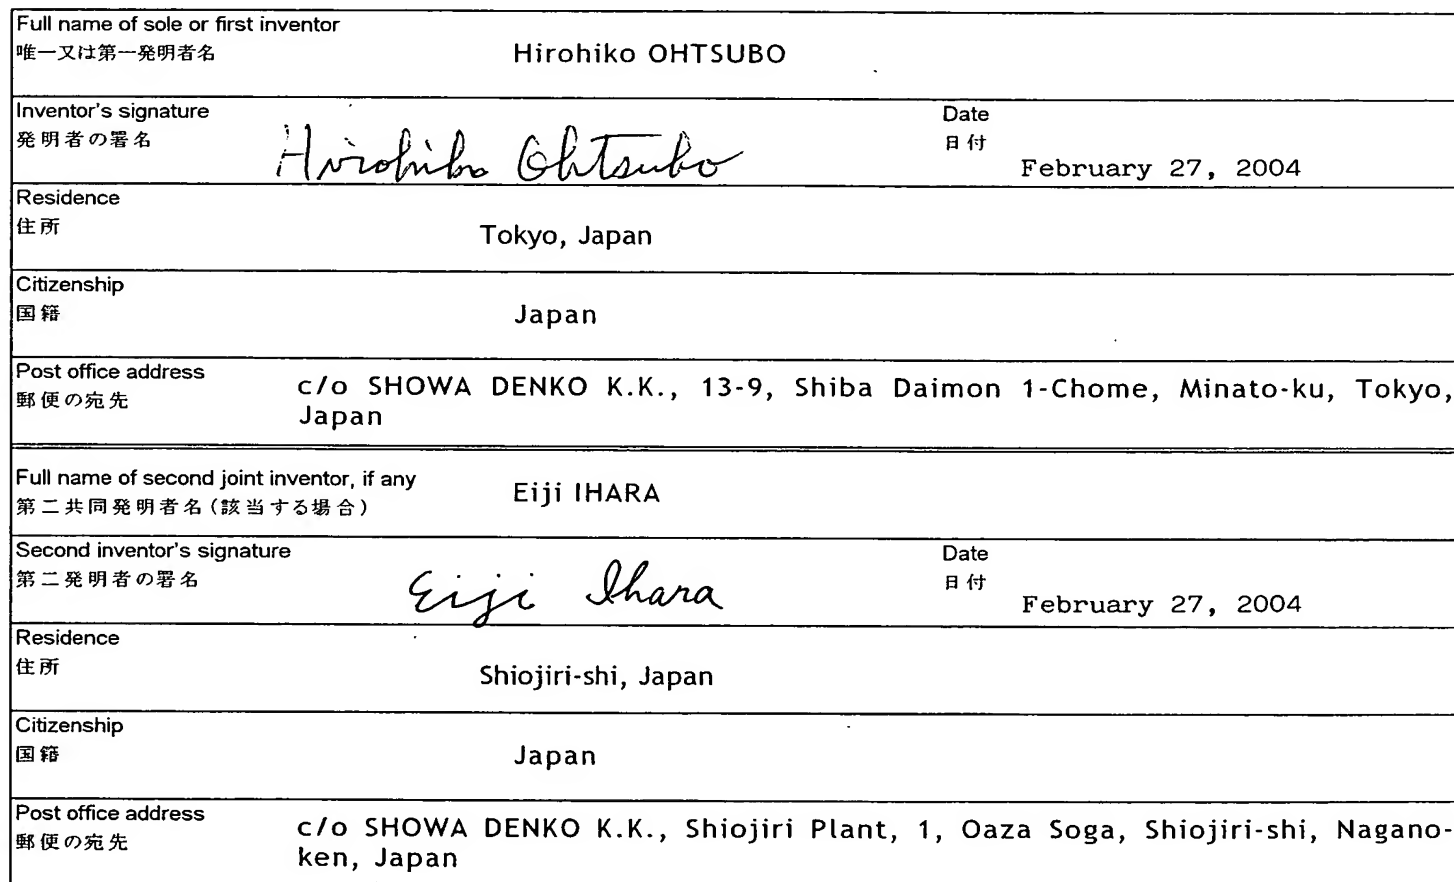 Full name of sole or first inventor
唯一又は第一発明者名 Hirohiko OHTSUBO
Inventor's signature Date
発明者の署名 Hirohiko Ohtsubo 日付 February 27, 2004
Residence
住所 Tokyo, Japan
Citizenship
国籍 Japan
Post office address
郵便の宛先 c/o SHOWA DENKO K.K., 13-9, Shiba Daimon 1-Chome, Minato-ku, Tokyo,
Japan
Full name of second joint inventor, if any
第二共同発明者名(該当する場合) Eiji IHARA
Second inventor's signature Date
第二発明者の署名 Eiji Ihara 日付 February 27, 2004
Residence
住所 Shiojiri-shi, Japan
Citizenship
国籍 Japan
Post office address
郵便の宛先 c/o SHOWA DENKO K.K., Shiojiri Plant, 1, Oaza Soga, Shiojiri-shi, Nagano-
ken, Japan